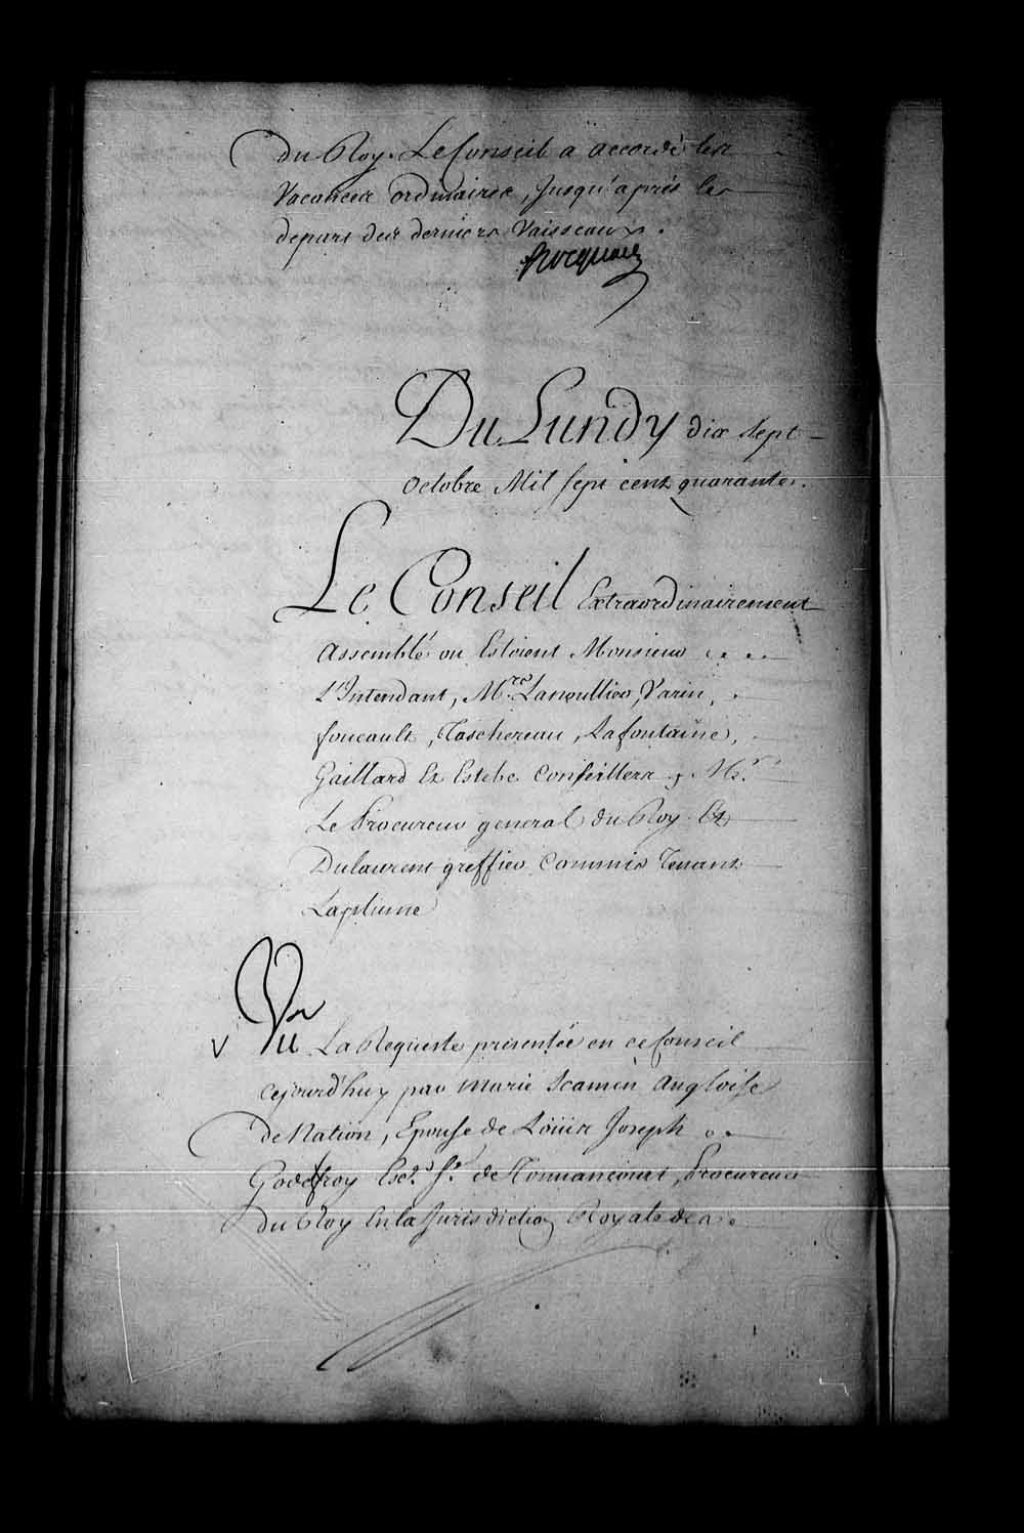 du Roy. Le Conseil a accordé les
Vacances ordinaires, Jusqu'après les
depart des derniers Vaisseaux.
Hocquart
Du Lundy dix sept
octobre Mil sept cent quarante.
Le Conseil Extraordinairement
assemblé ou Estoient Monsieur
L'Intendant, M.res Lanoullier, Varin,
foucault, Taschereau, Lafontaine,
Gaillard Et Estebe Conseillers, Mr.
Le Procureur general du Roy Et
Dulaurent greffier Commis Tenant
Laplume
V Vu La Requeste presentée en ce Conseil
Cejourd'huy par Marie Scamen angloise
de Nation, Epouse de Loüis Joseph
Godefroy Esc.r S.r de Tonnancourt, Procureur
du Roy En la Jurisdiction Royale des